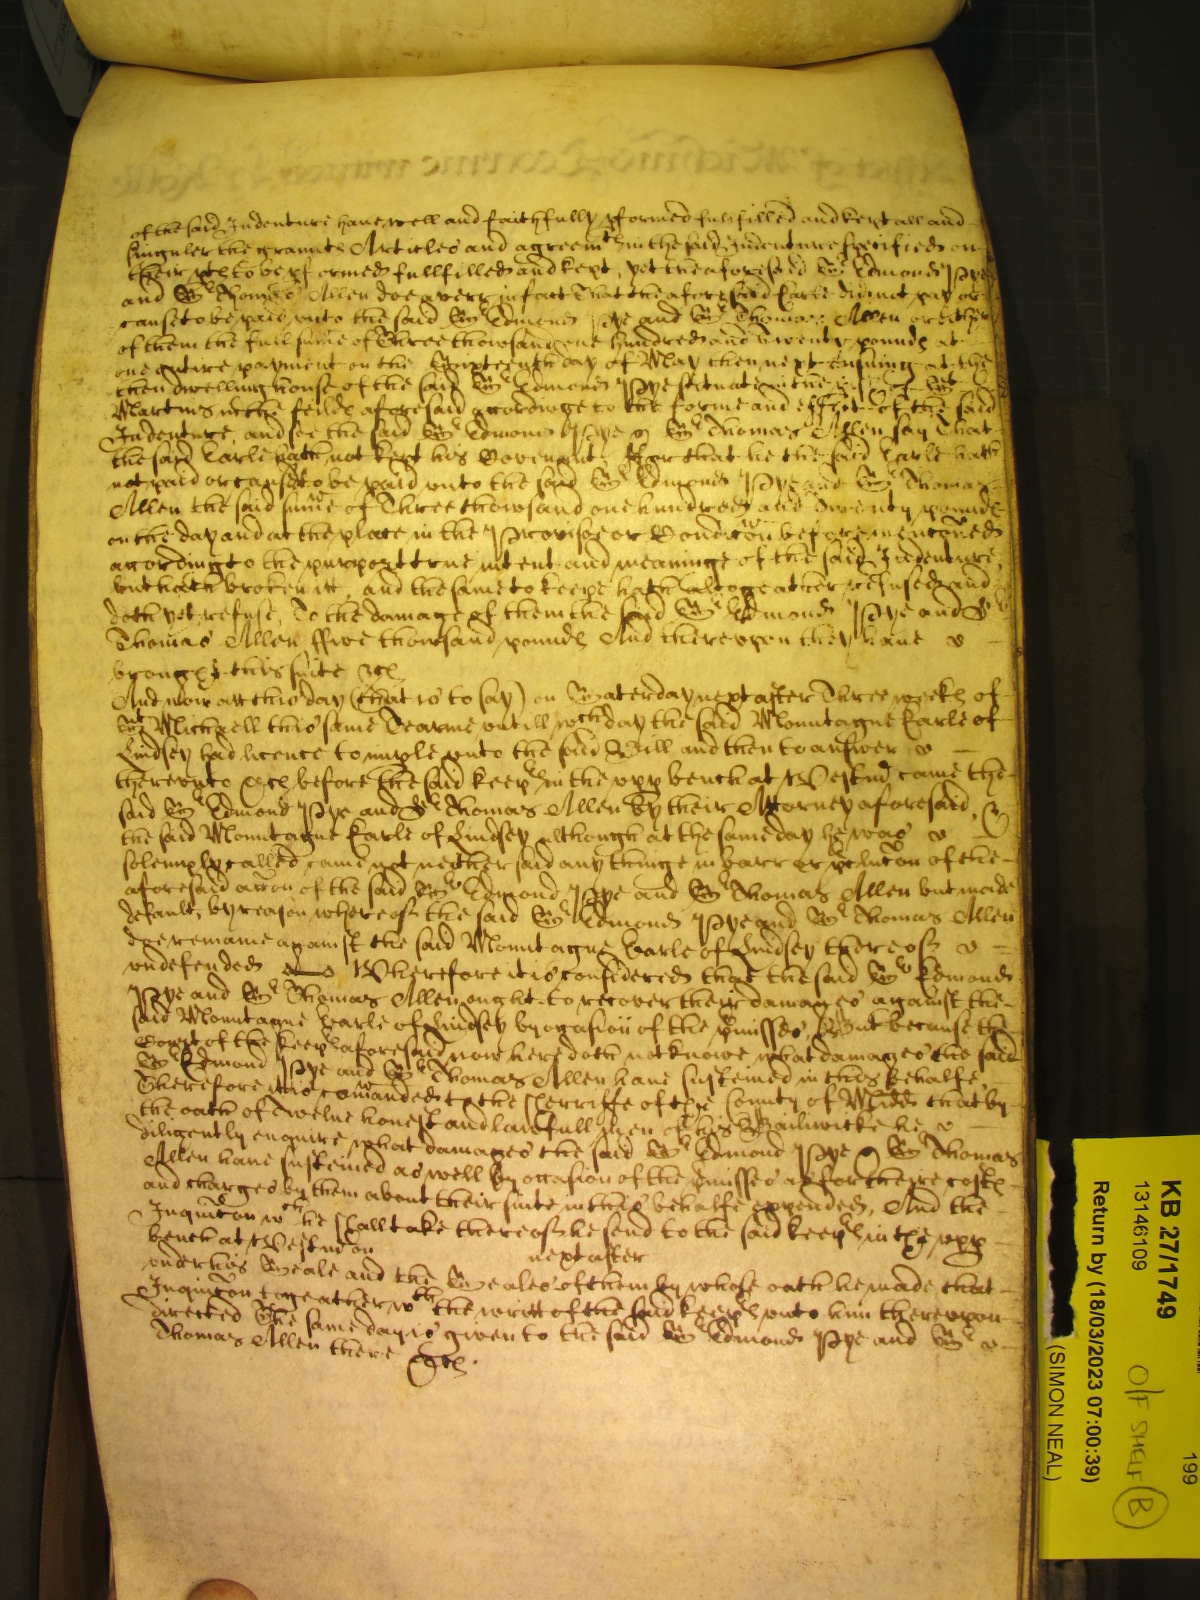 of the said Indenture have well and faithfully pformed fulfilled and kept all and
singuler the graunts Articles and agreemts in the said Indenture specified on
their pts to be pformed fullfilled and kept, yet the aforesaid Sr Edmond Pye
and Sr Thomas Allen doe averr in fact that the aforesaid Earle did not pay or
cause to be paid unto the said Sr Edmond Pye and Sr Thomas Allen or either
of them the full sume of Three thowsand one hundred and twenty pounds at
one entire payment on the Sixteenth day of May then next ensuing at the
then dwelling house of the said Sr Edmond Pye scituate in the St
Martins in the feilds aforesaid accordinge to the forme and effect of the said
Indenture, and soe the said Sr Edmond Pye & Sr Thomas Allen say that
the said Earle hath not kept his Covenant, ffor that he the said Earle hath
not paid or caused to be paid unto the said Sr Edmond Pye and Sr Thomas
Allen the said sume of Three thowsand one hundred and twenty pounds
on the day and at the place in the Provisoe or Condicon before menconed
according to the purport true intent and meaninge of the said Indenture,
but hath broken itt, and the same to keepe hath altogeather refused and
doth yet refuse, To the damage of them the said Sr Edmond Pye and Sr
Thomas Allen ffive thowsand pounds And thereupon they have
brought this suite &c
And now att this day (that is to say) on Saterday next after Three weeks of
St Michaell this same Tearme untill wch day the said Mountague Earle of
Lindsey had licence to imple unto the said Bill and then to answer
thereunto &c before the said keeps in the upp bench at Westmr came the
said Sr Edmond Pye and Sr Thomas Allen by their Attorney aforesaid, &
the said Mountague Earle of Lindsey although at the same day he was
solemply called came not neither said any thinge in barr or pclucon of the
aforesaid accon of the said Sr Edmond Pye and Sr Thomas Allen but made
default, by reason whereof the said Sr Edmond Pye and Sr Thomas Allen
doe remaine against the said Mountague Earle of Lindsey thereof
undefended Wherefore it is considered that the said Sr Edmond
Pye and Sr Thomas Allen ought to recover their damages against the
said Mountague Earle of Lindsey by occasion of the pmisses, But because the
Court of the keeps aforesaid now here doth not knowe what damages the said
Sr Edmond Pye and Sr Thomas Allen have susteined in this behalfe,
Therefore it is comanded to the Sherriffe of the County of Midd that by
the oath of Twelve honest and lawfull men of his Bailiwicke he
diligently enquire what damages the said Sr Edmond Pye & Sr Thomas
Allen have susteined as well by occasion of the pmisses as for theire costs
and charges by them about their suite in this behalfe expended, And the
Inquicon wch he shall take thereof he send to the said keeps in the upp
bench at Westmr on next after
under his Seale and the Seales of them by whose oath he made that
Inquicon togeather wth the writt of the said keeps unto him thereupon
directed The same day is given to the said Sr Edmond Pye and Sr
Thomas Allen there &c.
KB 27/1749
13146109
Return by (18/03/2023 07:00:39)
(SIMON NEAL)
O/F SHELF B
199